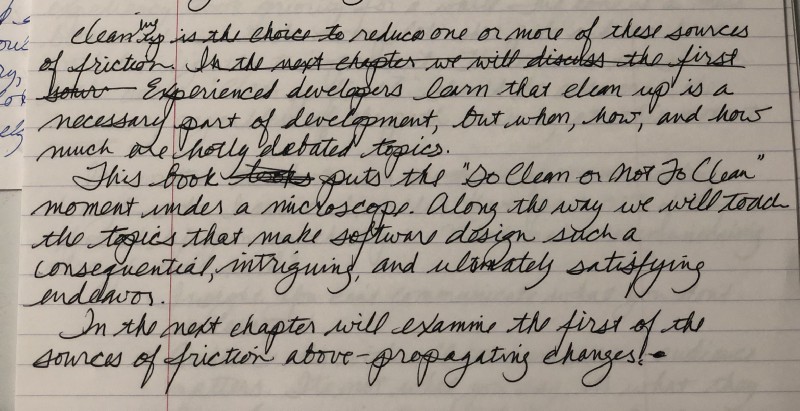 Cleaning up is the choice to reduce one or more of these sources
of friction. In the next chapter we will discuss the first
sour Experienced developers learn that clean up is a
necessary part of development, but when, how, and how
much are hotly debated topics.
This book looks puts the "To Clean or Not To Clean"
moment under a microscope. Along the way we will touch
the topics that make software design such a
consequential, intriguing, and ultimately satisfying
endeavor.
In the next chapter will examine the first of the
sources of friction above-propagating changes.